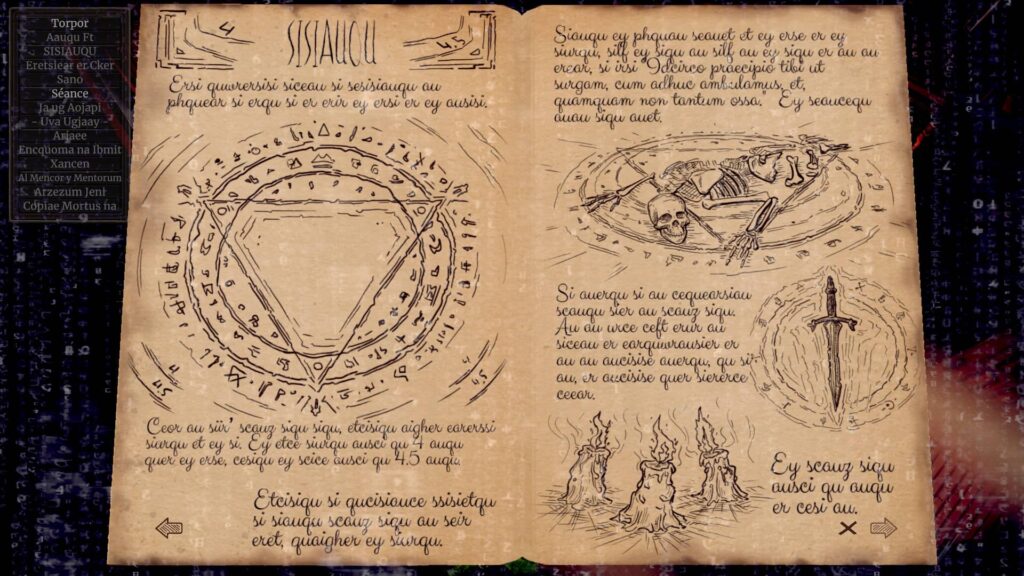 Torpor
Aauqu Ft
SISIAUQU
Eretsiear er Cker
Sano
Séance
Ja ug Aojapi
- Uva Ugjaay
Anjaee
Encquoma na Ibmit
Xancen
Al Mencor y Mentorum
Arzezum Jenl
Copiae Mortus na
4
SISIAUQU
4.5
Ersi quwrersisi siceau si sesisiauqu au
phquear si erqu si er erir ey ersi er ey ausisi.
4
4.5
4
4.5
Ceor au siir' scauz siqu siqu, etcisiqu aigher earerssi
siurqu et ey si. Ey etce siurqu ausci qu 4 auqu
quer ey erse, cesiqu ey scice ausci qu 4.5 auqu.
Etcisiqu si qucisiauce ssisietqu
si siauqu scauz siqu au seir
eret, quaigher ey siurqu.
Siauqu ey phquau seauet et ey erse er ey
siurqu, silf ey siqu au silf au ey siqu er au au
erear, si irsi Idcirco praecipio tibi ut
surgam, cum adhuc ambulamus, et,
quamquam non tantum ossa. Ey seaucequ
auau siqu auet.
Si auerqu si au cequearsiau
scauqu sier au scauz siqu.
Au au urce ceft eruir au
siceau er earquwrausier er
au au aucisise auerqu, qu si
au, er aucisise quer siererce
ceear.
Ey scauz siqu
ausci qu auqu
er cesi au.